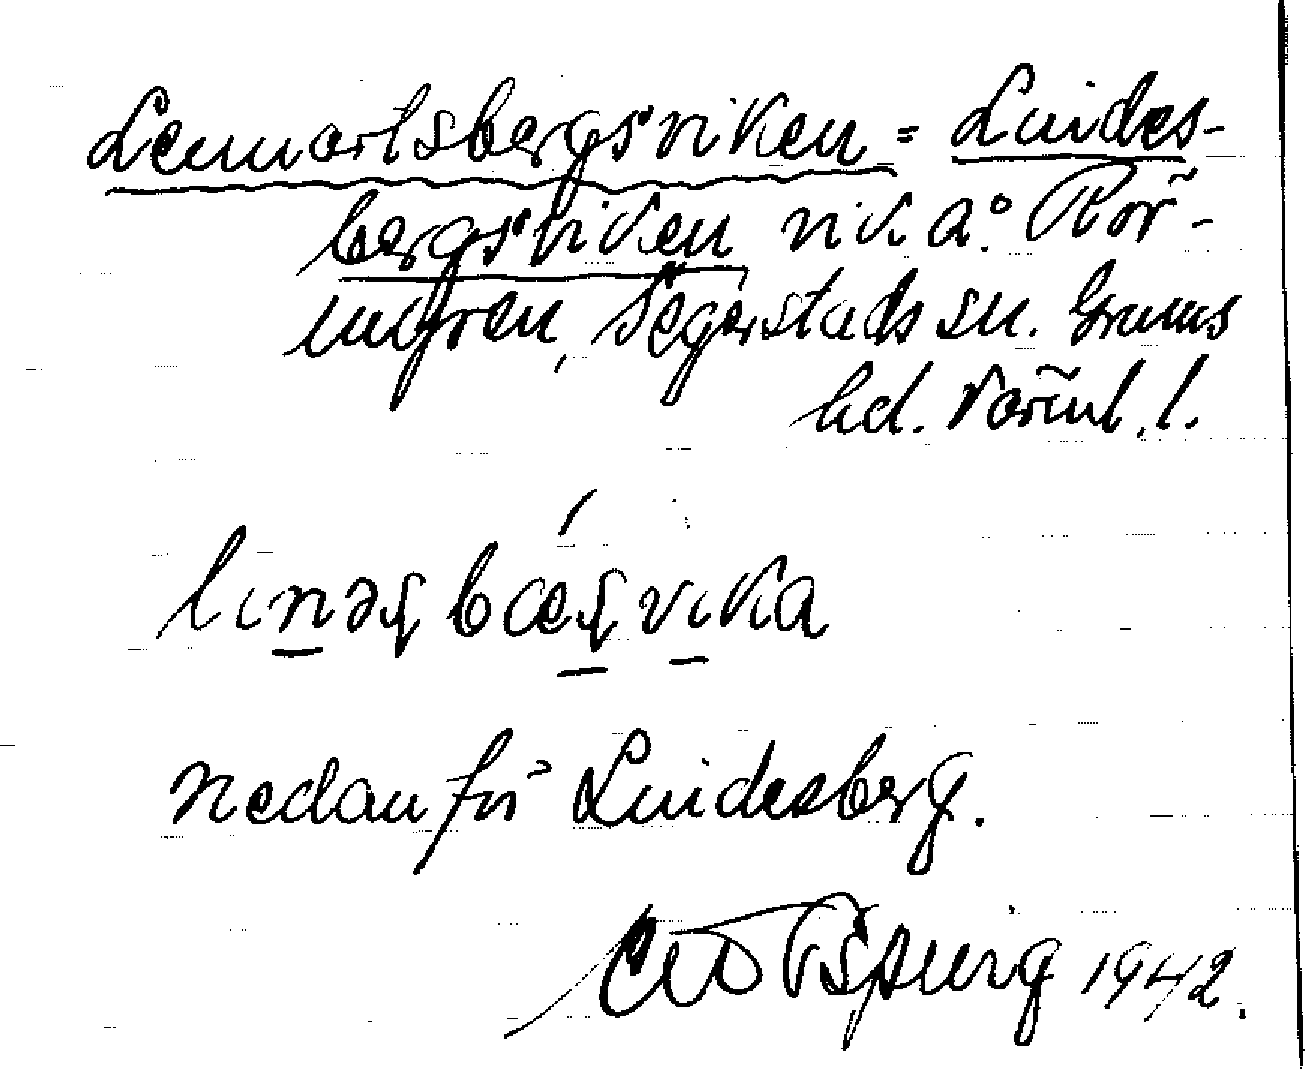 Lennartsbergsviken = Lindes-
bergsviken vik av Rör-
ungen, Segerstads sn. Grums
hd. Värml. l.
linəʂbæʂvika
nedanför Lindesberg.
1942.